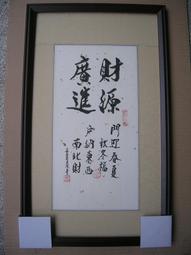 財源
廣進
門迎春夏
秋冬福
戶納東西
南北財